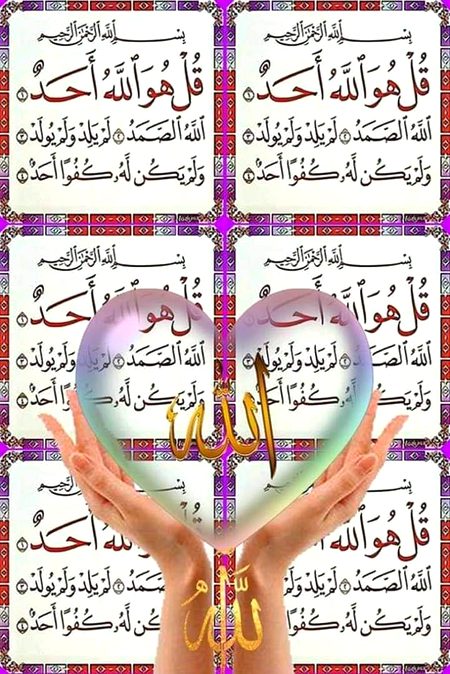 بِسْمِ ٱللَّهِ ٱلرَّحْمَٰنِ ٱلرَّحِيمِ
قُلْ هُوَ ٱللَّهُ أَحَدٌ ١
ٱللَّهُ ٱلصَّمَدُ ٢ لَمْ يَلِدْ وَلَمْ يُولَدْ ٣
وَلَمْ يَكُن لَّهُۥ كُفُوًا أَحَدٌۢ ٤
بِسْمِ ٱللَّهِ ٱلرَّحْمَٰنِ ٱلرَّحِيمِ
قُلْ هُوَ ٱللَّهُ أَحَدٌ ١
ٱللَّهُ ٱلصَّمَدُ ٢ لَمْ يَلِدْ وَلَمْ يُولَدْ ٣
وَلَمْ يَكُن لَّهُۥ كُفُوًا أَحَدٌۢ ٤
بِسْمِ ٱللَّهِ ٱلرَّحْمَٰنِ ٱلرَّحِيمِ
قُلْ هُوَ ٱللَّهُ أَحَدٌ ١
ٱللَّهُ ٱلصَّمَدُ ٢ لَمْ يَلِدْ وَلَمْ يُولَدْ ٣
وَلَمْ يَكُن لَّهُۥ كُفُوًا أَحَدٌۢ ٤
بِسْمِ ٱللَّهِ ٱلرَّحْمَٰنِ ٱلرَّحِيمِ
قُلْ هُوَ ٱللَّهُ أَحَدٌ ١
ٱللَّهُ ٱلصَّمَدُ ٢ لَمْ يَلِدْ وَلَمْ يُولَدْ ٣
وَلَمْ يَكُن لَّهُۥ كُفُوًا أَحَدٌۢ ٤
الله
بِسْمِ ٱللَّهِ ٱلرَّحْمَٰنِ ٱلرَّحِيمِ
قُلْ هُوَ ٱللَّهُ أَحَدٌ
ٱللَّهُ ٱلصَّمَدُ ٢ لَمْ يَلِدْ وَلَمْ يُولَدْ ٣
وَلَمْ يَكُن لَّهُۥ كُفُوًا أَحَدٌۢ
بِسْمِ ٱللَّهِ ٱلرَّحْمَٰنِ ٱلرَّحِيمِ
هُوَ ٱللَّهُ أَحَدٌ ١
ٱلصَّمَدُ ٢ لَمْ يَلِدْ وَلَمْ يُولَدْ ٣
يَكُن لَّهُۥ كُفُوًا أَحَدٌۢ ٤